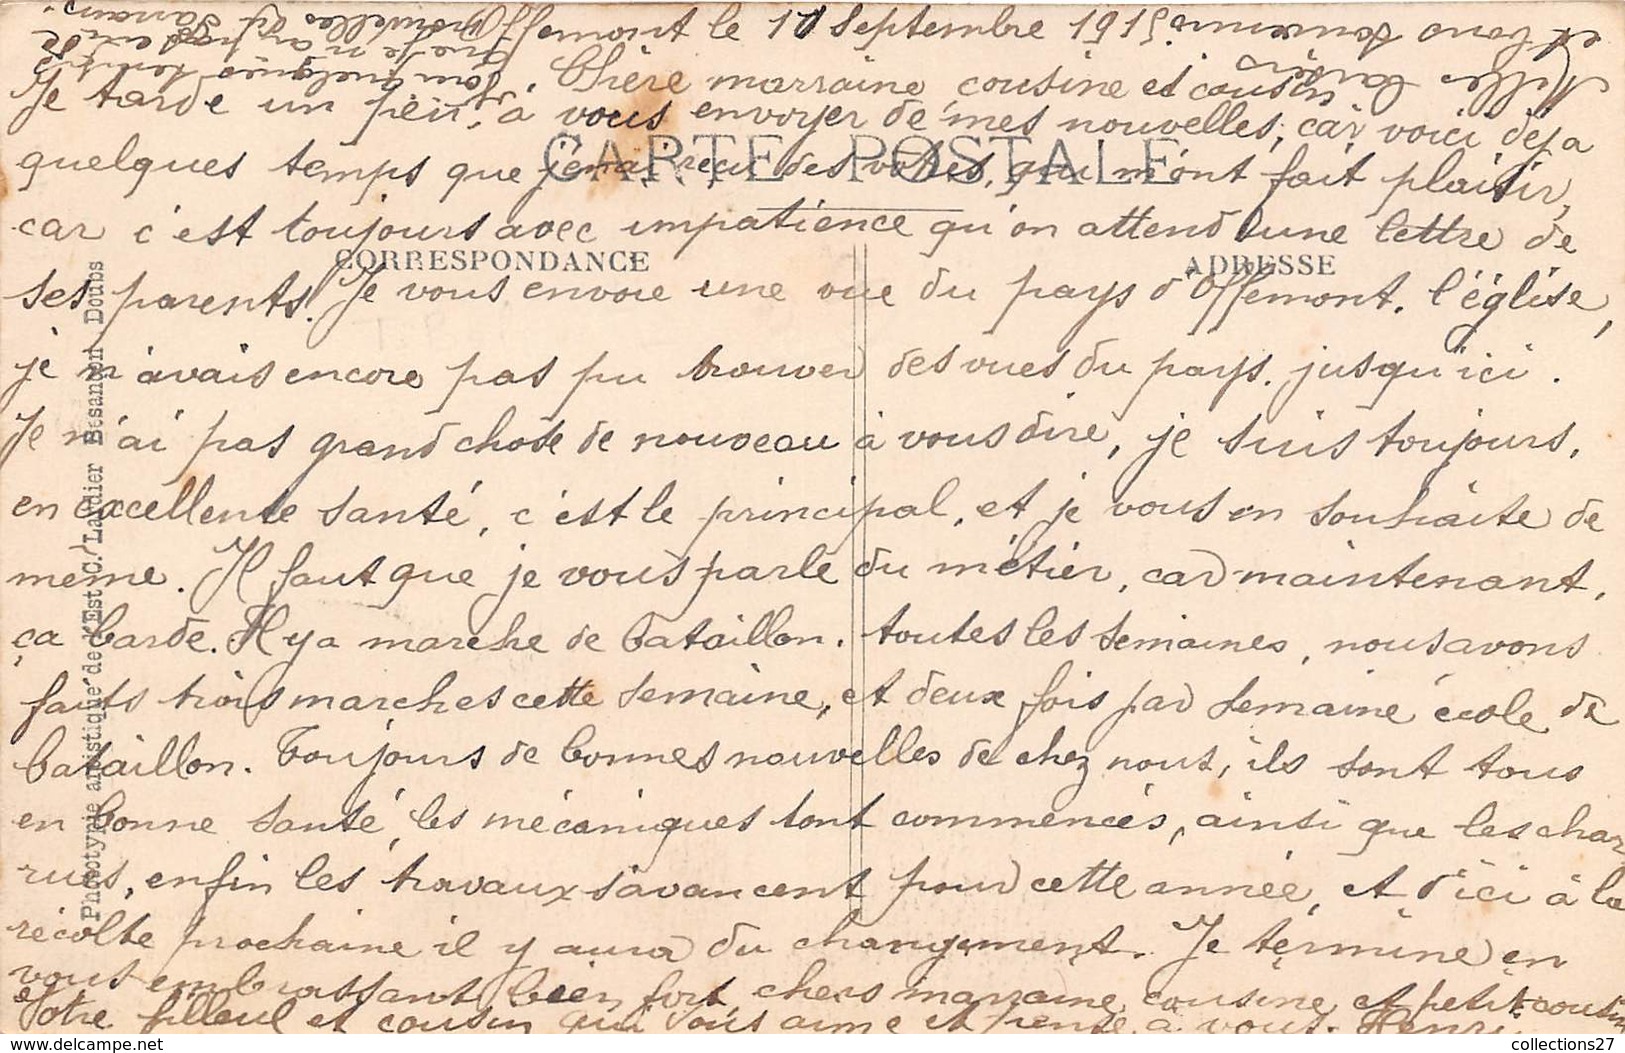 Offemont le 11 Septembre 1915
Chère marraine cousine et cousin
Je tarde un peu, à vous envoyer de mes nouvelles, car voici déja
CARTE POSTALE
quelques temps que j'en ai reçu des votres, qui m'ont fait plaisir,
car c'est toujours avec impatience qu'on attend une lettre de
CORRESPONDANCE
ADRESSE
ses parents. Je vous envoie une vue du pays d'Offemont. l'église,
je n'avais encore pas pu trouver des vues du pays. jusqu'ici.
Je n'ai pas grand chose de nouveau à vous dire, je suis toujours,
en excellente santé, c'est le principal, et je vous en souhaite de
meme. Il faut que je vous parle du métier, car maintenant,
ça barde. Il y a marche de bataillon. toutes les semaines, nous avons
faits trois marches cette semaine, et deux fois par semaine école de
bataillon. Toujours de bonnes nouvelles de chez nous, ils sont tous
en bonne santé, les mécaniques sont commencés, ainsi que les char
rues, enfin les travaux s'avancent pour cette année, et d'ici à la
récolte prochaine il y aura du changement. Je termine en
vous embrassant bien fort chers marraine, cousine, et petit cousin
Votre filleul et cousin qui vous aime et pense à vous. Henri
et bons souvenirs
Mille baisers
quelques temps
que je n'ai pas eu de
nouvelles
Phototypie artistique de l'Est C. Lardier Besançon Doubs
collections27